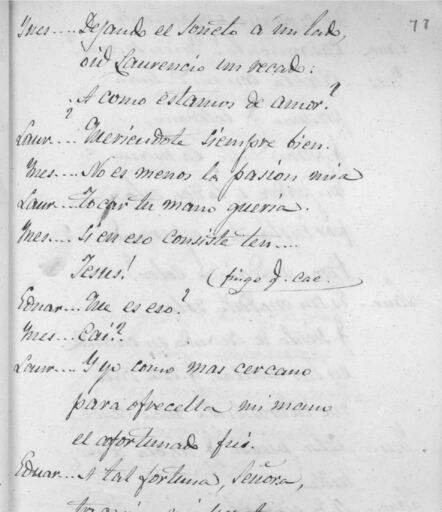 77
Ynes.... Dejando el soneto á un lado,
oid Laurencio un recado:
A como estamos de amor?
Laur.... Queriendote siempre bien.
Ynes.... No es menos la pasion mia
Laur.... Tocar tu mano queria.
Ynes.... Si en eso consiste ten....
Jesus! (finge q. cae.
Eduar... Que es eso?
Ynes.... Caí?
Laur.... Y yo como mas cercano
para ofrecella mi mano
el afortunado fuí.
Eduar... A tal fortuna, Señora,